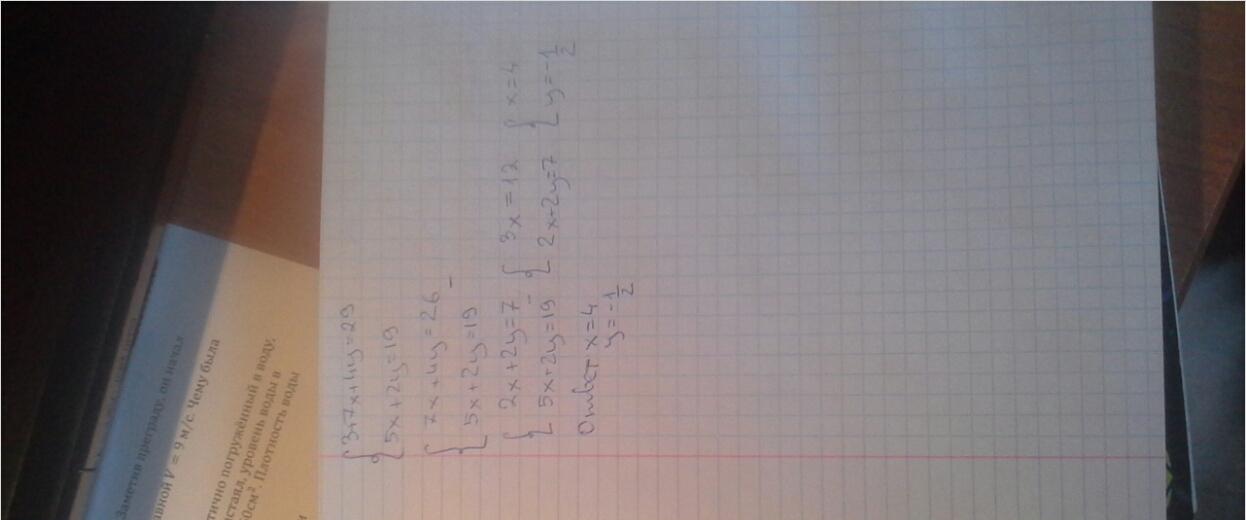 Заметив преграду, он начал
V = 9 м/с. Чему была
погружённый в воду.
уровень воды в
Плотность воды
{ 3+7x+4y=29
{ 5x+2y=19
{ 7x+4y=26 -
{ 5x+2y=19
{ 2x+2y=7 - { 3x=12 { x=4
{ 5x+2y=19 { 2x+2y=7 { y=-1/2
Ответ x=4
y=-1/2